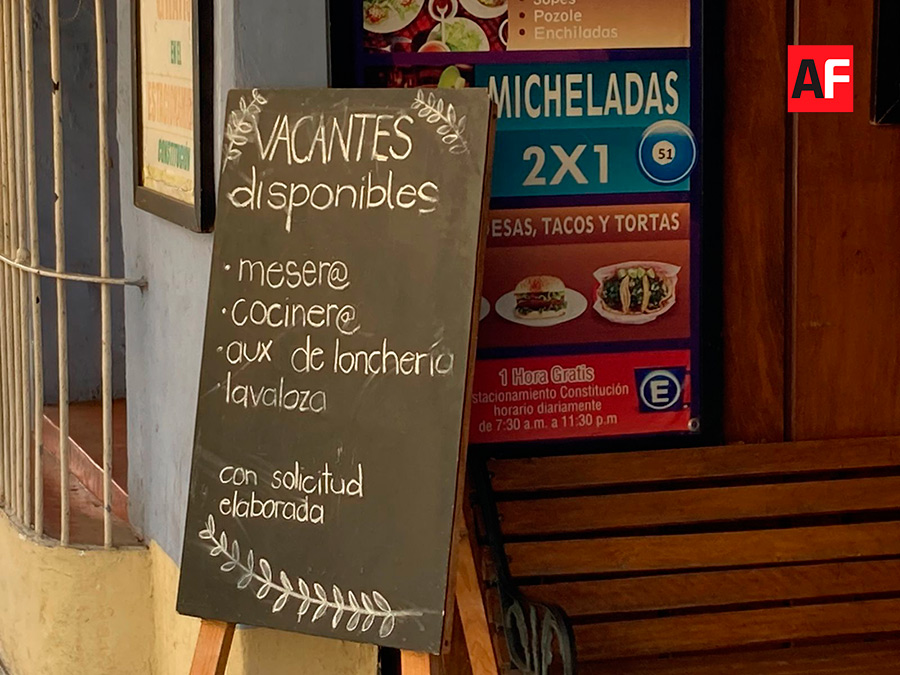 VACANTES
disponibles
· meser@
· cociner@
· aux de lonchería
· lavaloza
con solicitud
elaborada
• Pozole
• Enchiladas
MICHELADAS
2X1
51
TACOS Y TORTAS
1 Hora Gratis
Constitución
horario diariamente
de 7:30 a.m. a 11:30 p.m
E
EN EL
CONSTITUCION
AF